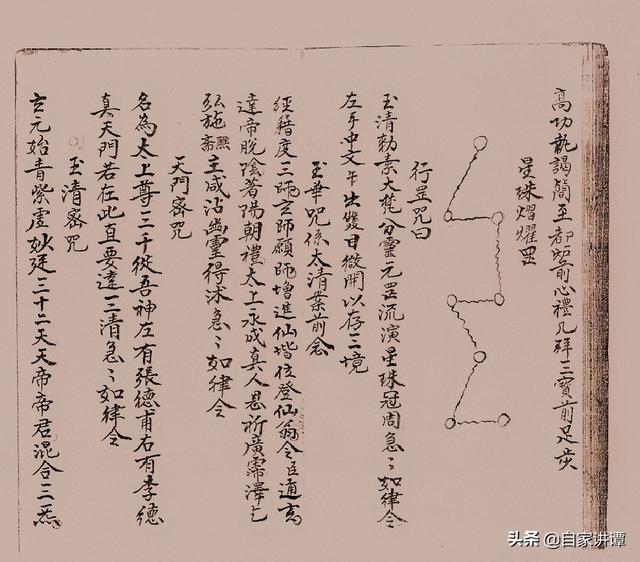 高功執謁簡至都堂前心禮几拜三寶前足炭
星珠熠耀罡
行罡咒曰
玉清勅素大梵分靈元罡流演星珠冠周急〻如律令
左手中文午出雙目微開以存三境
玉華咒係太清案前念
經籍度三師玄師願師增進仙堦位登仙翁令臣道高
達帝脫陰著陽朝禮太上永成真人恳祈廣霈澤乞
弘施 齋主咸沾幽靈得沭急〻如律令
天門密咒
名為太上尊三千從吾神左有張德甫右有李德
真天門若在此直要達三清急〻如律令
玉清密咒
玄元始青紫虛妙廷三十二天天帝帝君混合三炁
头条 @自家讲谭